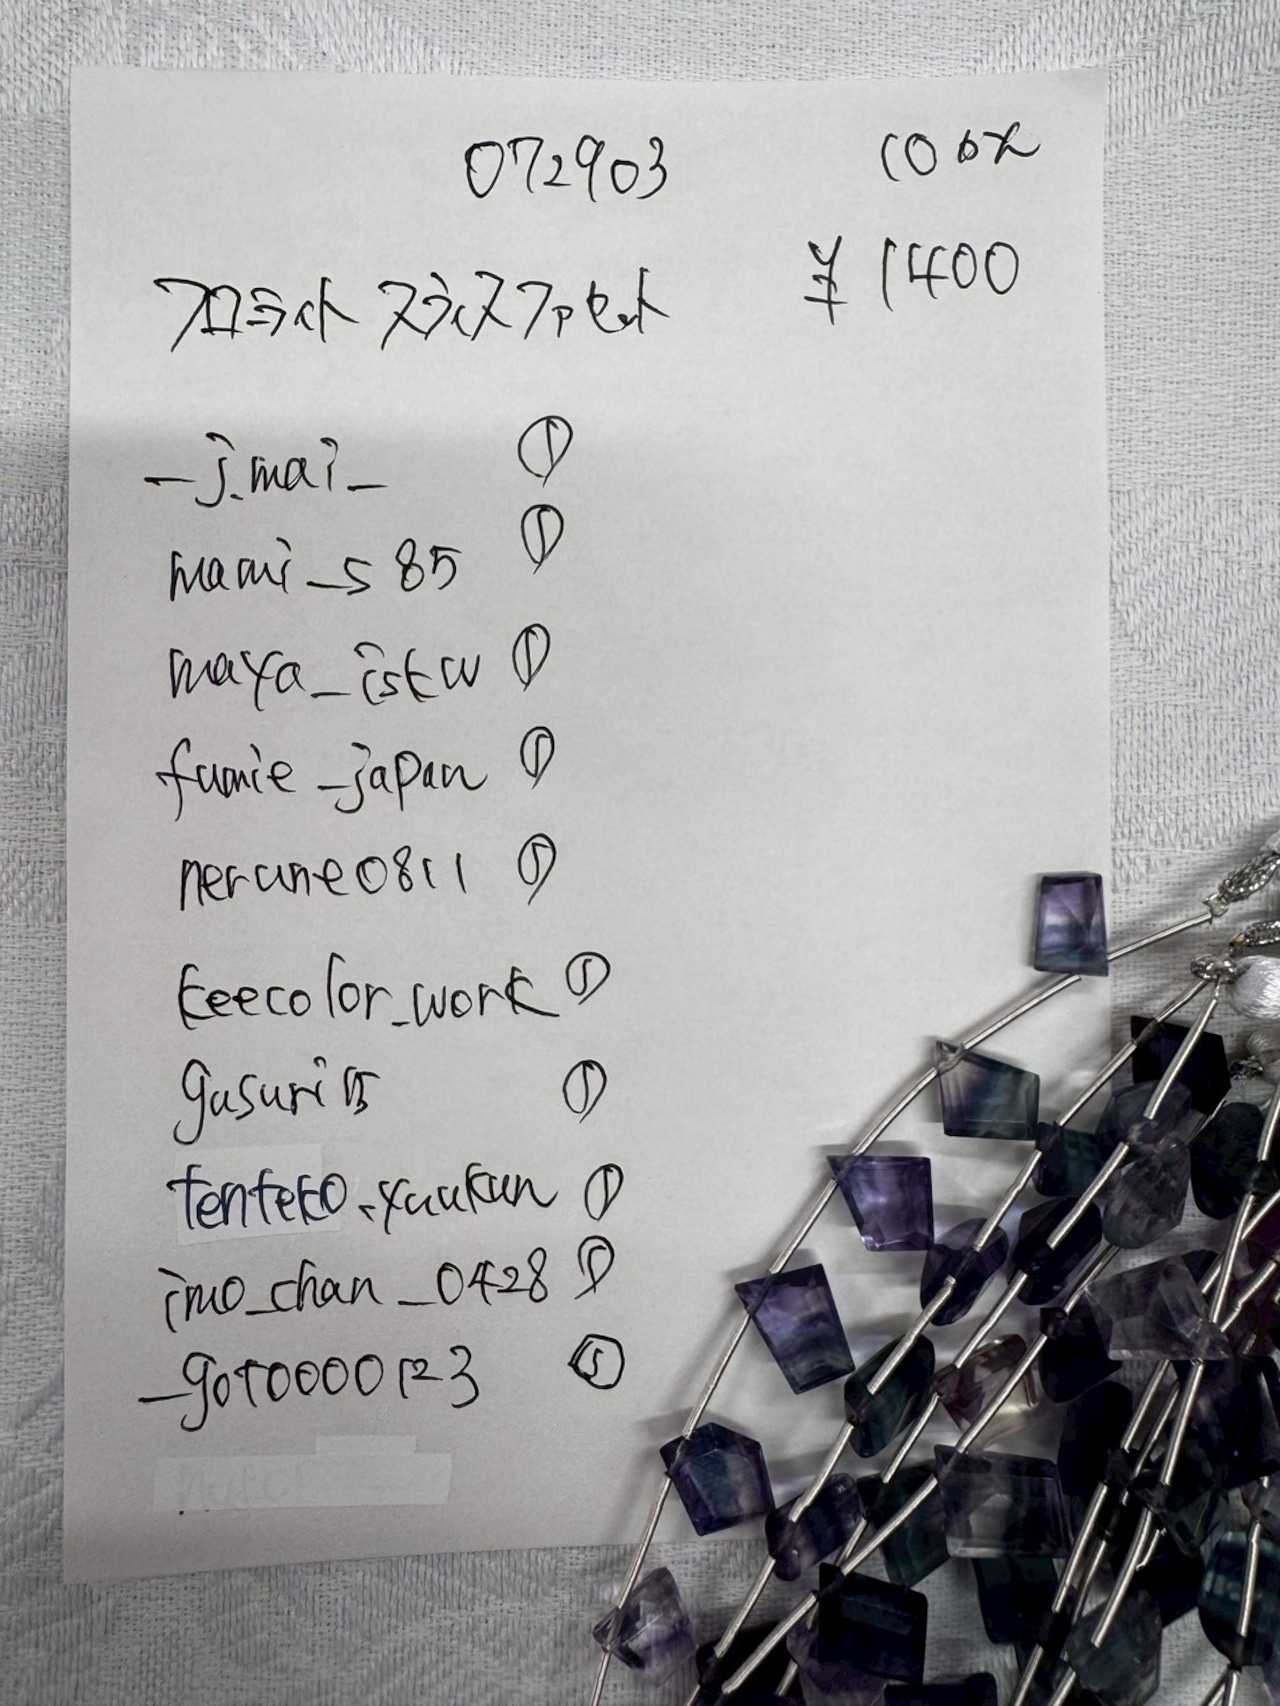 072903 10コ
¥1400
フロライト スライスファセット
_j.mai_ ①
mami_s85 ①
maya_istw ①
fumie_japan ①
nerune0811 ①
keecolor_work ①
gusuri15 ①
tenteko.yuukun ①
imo_chan_0428 ①
_goto000123 ①